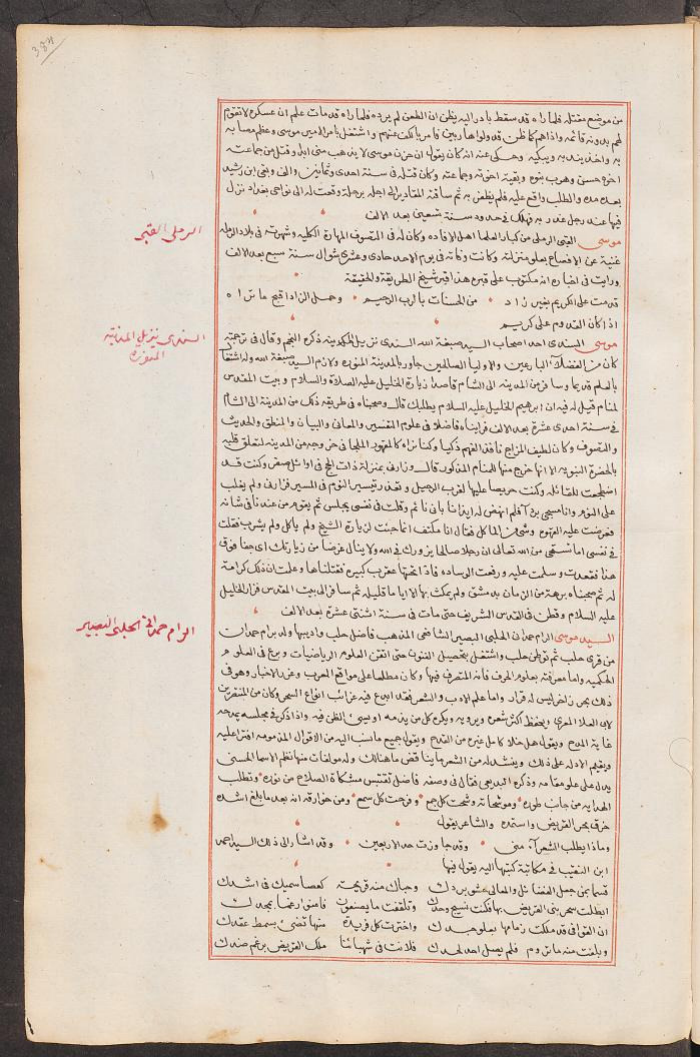 384
من موضع مقتله فلما راه قد سقط بادر اليه يظن ان الطعن لم يرده فلما راه قد مات علم ان عسكره لا تقوم
لهم بدونه قائمه واذاهم كما ظن قد ولوا هاربين فامر بالكف عنهم واشتغل بامر الامير موسى وعظم مصابه
به واخذ يندبه ويبكيه وحكى عنه انه كان يقول ان حزن موسى لا يذهب منى ابدا وقتل من جماعته
اخوه حسن وهرب بنوه وبقية اخوته وجماعته وكان قتله فى سنة احدى وثمانين والف وبقى ابن رشيد
بعده مدة والطلب واقع عليه فلم يظفر به ثم ساقته المقادير الى اجله برجله وقعت له الى نواحى بغداد نزل
فيها عند رجل غدر به فهلك فى حدود سنة تسعين بعد الالف
الرملى القبى
موسى القبى الرملى من كبار العلما اهل الافاده وكان له فى التصوف المهارة الكليه وشهرته فى بلاد الرمله
غنية عن الافصاح بعلو منزلته وكانت وفاته فى يوم الاحد حادى وعشرى شوال سنة سبع بعد الالف
ورايت فى اخباره انه مكتوب على قبره هذا قبر شيخ الطريقة والحقيقة
قدمت على الكريم بغير زاد من الحسنات بالرب الرحيم وحمل الزاد اقبح ما تراه
اذا كان القدوم على كريم
السندى نزيل المدينة
المنوره
موسى السندى احد اصحاب السيد صبغة الله السندى نزيل المدينه ذكره النجم وقال فى ترجمته
كان من الفضلآ البارعين والاوليا الصالحين جاور بالمدينة المنوره ولازم السيد صبغة الله وله اشتغال
بالعلم قديما وسافر من المدينه الى الشام قاصدا زيارة الخليل عليه الصلاة والسلام وبيت المقدس
لمنام قيل له فيه ان ابرهيم الخليل عليه السلام يطلبك قال وصحبناه فى طريقه ذلك من المدينة الى الشام
فى سنة احدى عشرة بعد الالف فرايناه فاضلا فى علوم التفسير والمعانى والبيان والمنطق والحديث
والتصوف وكان لطيف المزاج ناقد الفهم ذكيا وكنا نراه كالمقهور الملجا فى خروجه من المدينه لتعلق قلبه
بالحضرة النبويه الا انها خرج منها للمنام المذكور قال وزارنى بمنزلة ذات الحج فى اوائل صفر وكنت قد
اضطجعت للقائله وكنت حريصا عليها لقرب الرحيل وتعذر تيسير النوم فى المسير فزارنى ولم يغلب
على النوم وانا مسجى فلم انهض له ايذانا بانى نائم وقلت فى نفسى يجلس ثم يقوم من عندنا فى شانه
فعرضت عليه القهوه وشى من الماكل فقال انا مكتف انما جئت لزيارة الشيخ ولم ياكل ولم يشرب فقلت
فى نفسى اما تستحى من الله تعالى ان رجلا صالحا يزورك فى الله ولا ينال غرضا من زيارتك اى جفا فوق
هذا فقعدت وسلمت عليه ورفعت الوساده فاذا تحتها عقرب كبيرة فقتلناها وعلمت ان ذلك كرامة
له ثم صحبناه برهة من الزمان بدمشق ولم يمكث بها الا اياما قليله ثم سافر الى بيت المقدس فزار الخليل
عليه السلام وقطن فى القدس الشريف حتى مات فى سنة اثنتى عشرة بعد الالف
الرام حمدانى الحلبى البصير
السيد موسى الرام حمدان الحلبى البصير الشافعى المذهب فاضل حلب واديبها ولد برام حمدان
من قرى حلب ثم توطن حلب واشتغل بتحصيل الفنون حتى اتقن العلوم الرياضيات وبرع فى العلوم
الحكميه واما معرفته بعلوم الحرف فانه المتصرف فيها وكان مطلعا على مواقع العرب وغرر الاخبار وهو فى
ذلك بحر زاخر ليس له قرار واما علم الادب والشعر فقد ابدع فيه غرائب انواع السحر وكان من المتغزلين
لابى العلا المعرى ويحفظ اكثر شعره ويرويه ويكره كل من يذمه او يسئ الظن فيه واذا ذكر فى مجلسه يمدحه
غاية المدح ويقول هل خلا كامل غيره من القدح ويقول جميع ما نسب اليه من الاقوال المذمومه افترا عليه
ويقيم الادله على ذلك وينشد له من الشعر ما يناقض ما هنالك وله مولفات منها نظم الاسما الحسنى
يدل على علو مقامه وذكره البديعى فقال فى وصفه فاضل تقتبس مشكاة الصلاح من نوره وتطلب
الهدايه من جانب طوره وموشحاته وشحت كل جمع وفرحت كل سمع ومن خوارقه انه بعد ما بلغ اشده
خرق بحر القريض واستده والشاعر يقول
وماذا يطلب الشعرآ منى وقد جاوزت حد الاربعين وقد اشار الى ذلك السيد احمد
ابن النقيب فى مكاتبة كتبها اليه يقول فيها
قسما بمن جعل الفضائل والمعالى عشو بردك وحباك منه قريحة كعصا سميك فى اشدك
ابطلت سحر بنى القريض بها فكنت نسيج وحدك وتلقفت ما يصنعون فامنوا رغما بمجدك
ان القوافى قد ملكت زمامها بعلو جدك واخترت كل فريدة منها تضئ بسمط عقدك
وبلغت منه ما تروم فلم يصل احد لحدك فلانت فى شهبائنا ملك القريض برغم ضدك